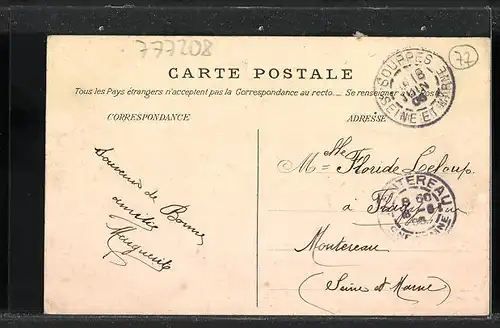 777208
77
CARTE POSTALE
Tous les Pays étrangers n'acceptent pas la Correspondance au recto. — Se renseigner à la Poste.
CORRESPONDANCE
ADRESSE
SOUPPES
SEINE ET MARNE
Souvenir de Bonne
amitié
Marguerite
Mlle Floride Leloup
à
MONTEREAU
Montereau
(Seine et Marne)